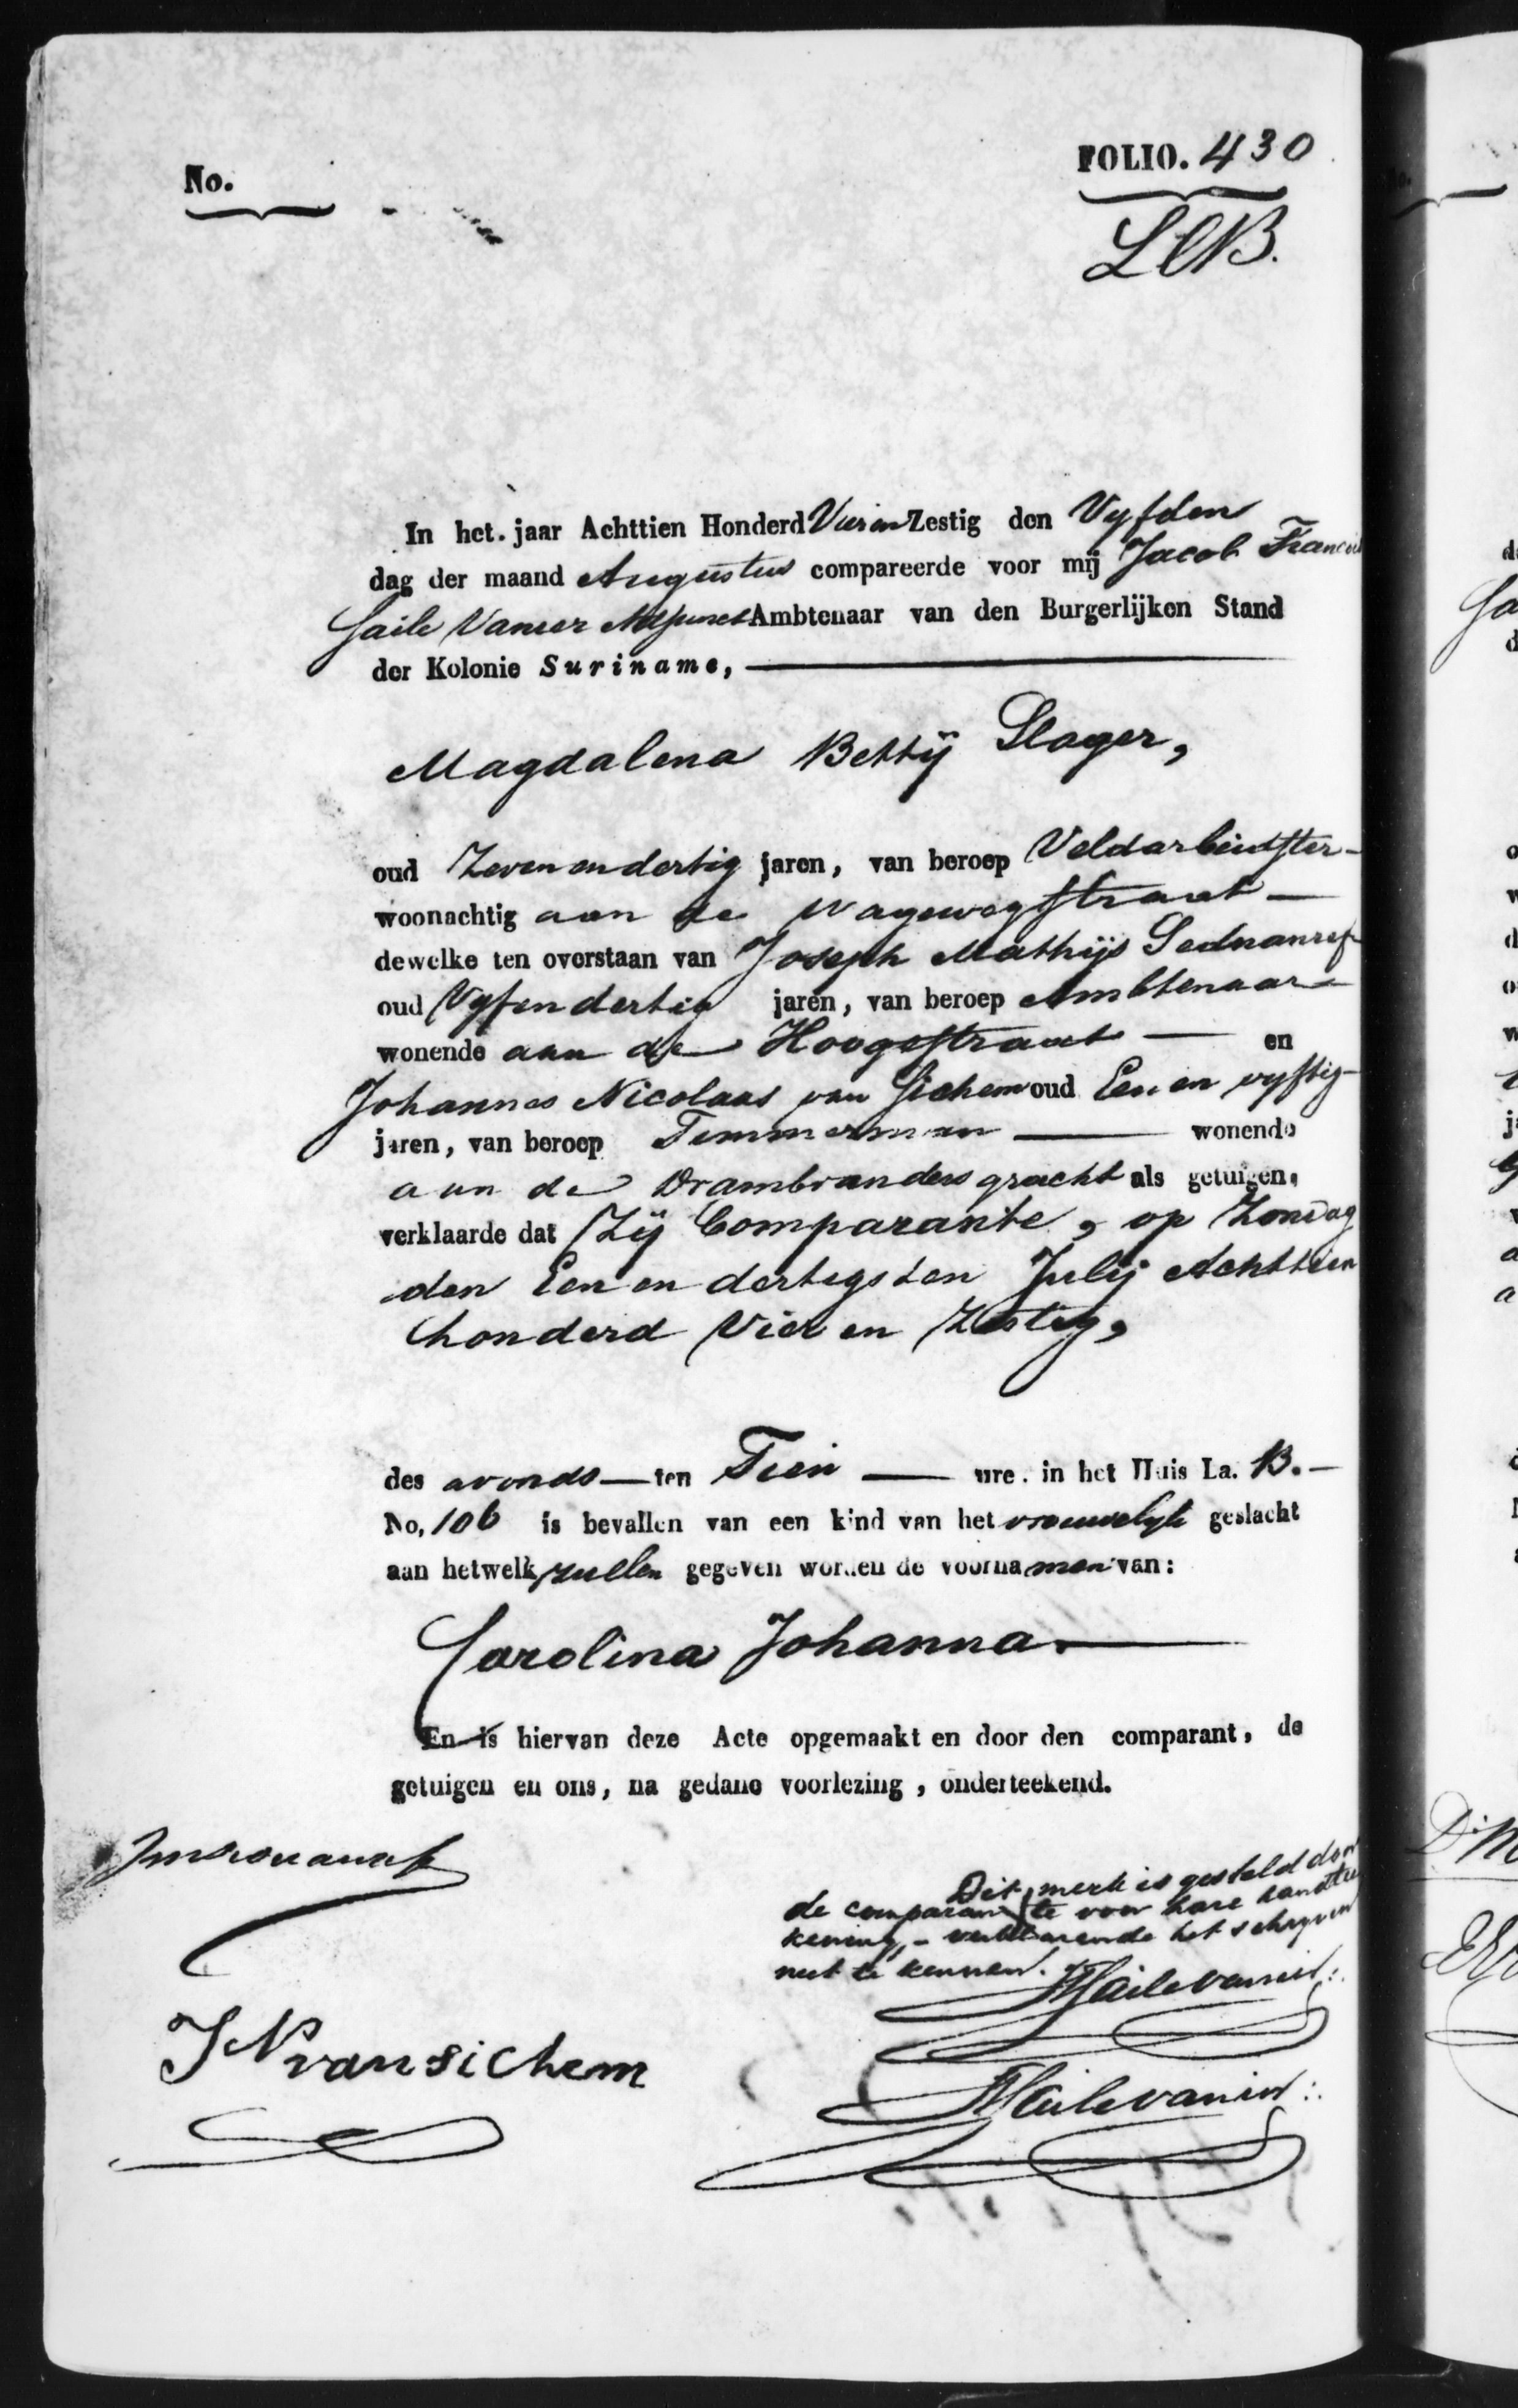 No.
FOLIO. 430
In het jaar Achttien Honderd Vier en Zestig den Vyfden
dag der maand Augustus compareerde voor mij Jacob Francois
Haile Vanier Adjunct Ambtenaar van den Burgerlijken Stand
der Kolonie Suriname,
Magdalena Bettÿ Slager,
oud Zeven en dertig jaren, van beroep Veldarbeidster
woonachtig aan de Wagewegstraat
dewelke ten overstaan van Joseph Mathijs
oud Vyf en dertig jaren, van beroep Ambtenaar
wonende aan de Hoogestraat en
Johannes Nicolaas van Sichem oud Een en vyftig
jaren, van beroep Timmerman wonende
aan de Drambrandersgracht als getuigen,
verklaarde dat Zÿ Comparante, op Zondag
den Een en dertigsten Julÿ Achttien
honderd Vier en Zestig,
des avonds ten Tien ure in het Huis La. B.
No, 106 is bevallen van een kind van het vrouwelyk geslacht
aan hetwelk zullen gegeven worden de voornamen van:
Carolina Johanna
En is hiervan deze Acte opgemaakt en door den comparant, de
getuigen en ons, na gedane voorlezing, onderteekend.
Dit merk is gesteld door
de comparante voor hare handtee
kening, - verklarende het schryven
niet te kennen.
Hailevanier
JN vansichem
Hailevanier